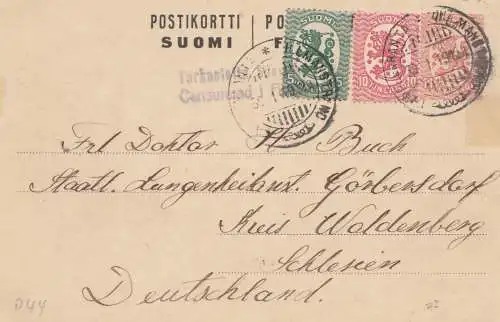 POSTIKORTTI
SUOMI
PO
F
SUOMI
10 FINLAND 10
Tarkastettu
Censurerad i F
Frl Doktor H Buch
Staatl. Lungenheilanst. Görbersdorf
Kreis Waldenberg
Schlesien
Deutschland.
D44